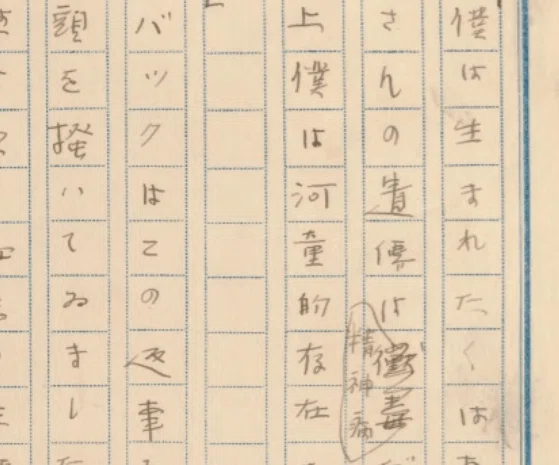 僕は生まれたくは
さんの遺伝は精神病
上僕は河童的存在
バックはこの返事
頭を掻いてゐまし